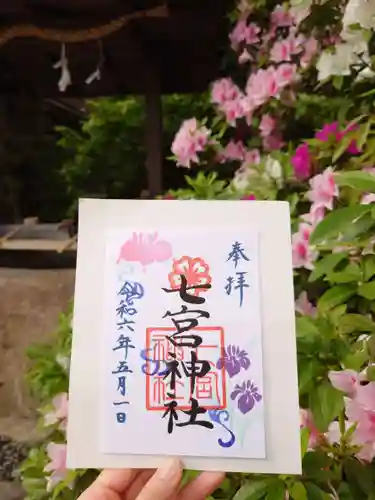 奉拝
七宮神社
令和六年五月一日